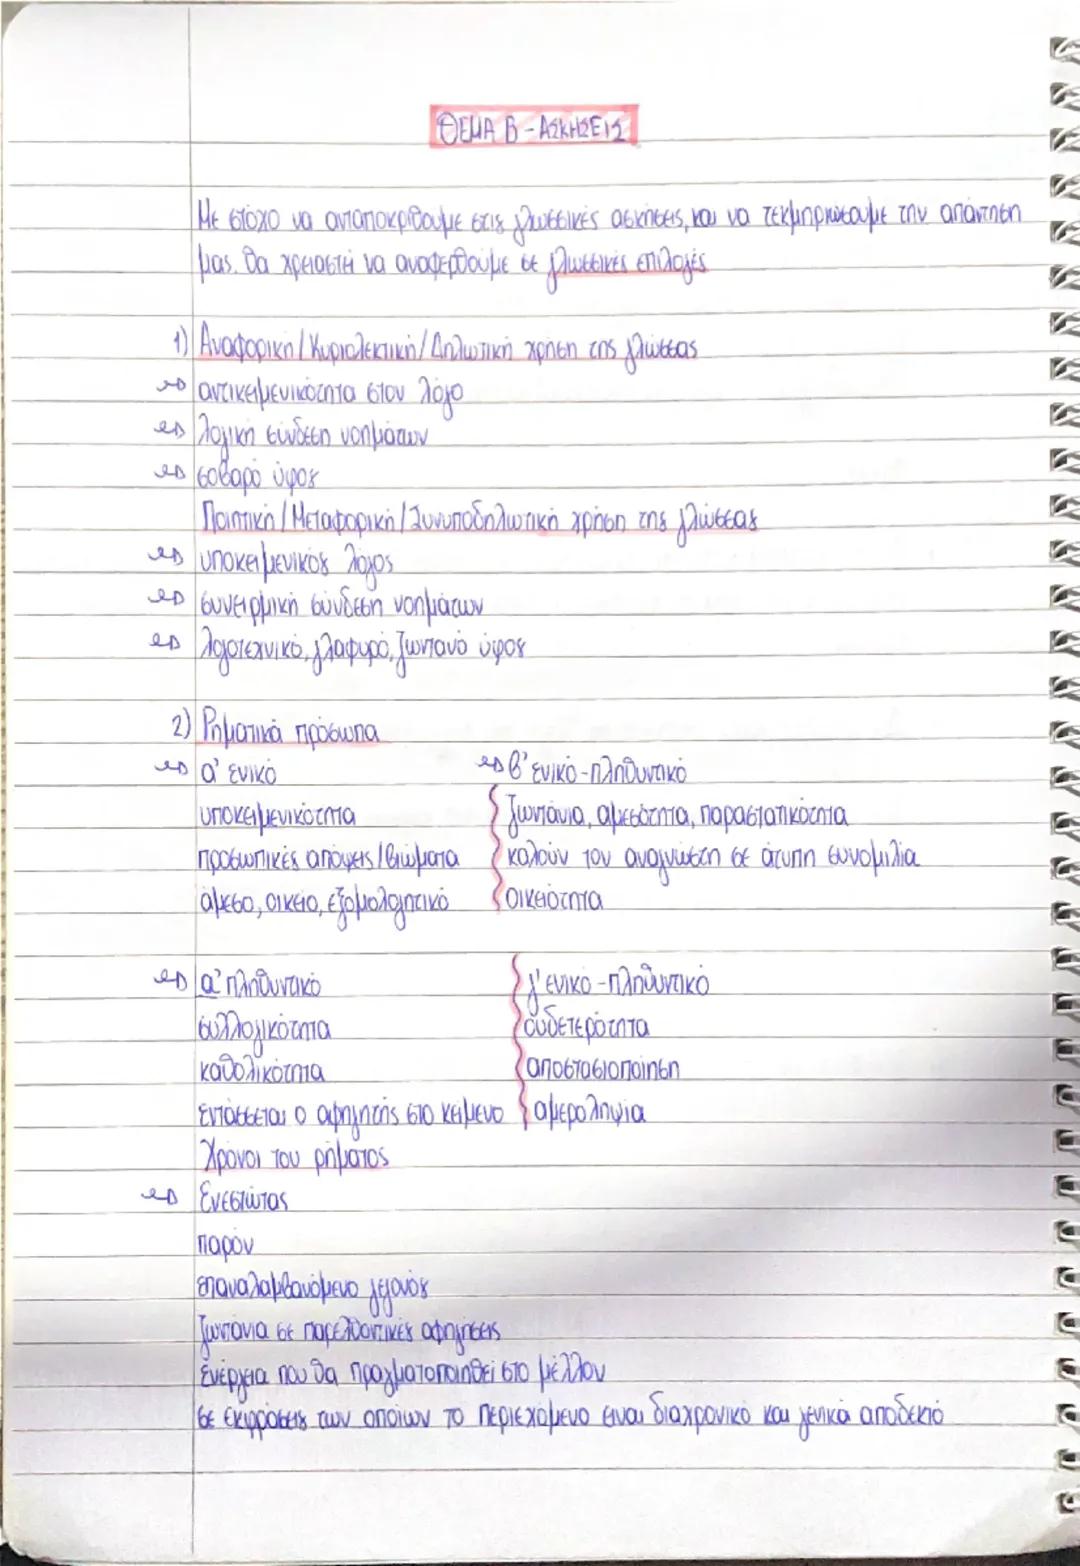 ΘΕΜΑ Β - ΑΣΚΗΣΕΙΣ
Με στόχο να ανταποκριθούμε στις γλωσσικές ασκήσεις, και να τεκμηριώσουμε την απάντηση
μας, θα χρειαστεί να αναφερθούμε σε γλωσσικές επιλογές
1) Αναφορική / Κυριολεκτική / Δηλωτική χρήση της γλώσσας
αντικειμενικότητα στον λόγο
λογική σύνδεση νοημάτων
σοβαρό ύφος
Ποιητική / Μεταφορική / Συνυποδηλωτική χρήση της γλώσσας
υποκειμενικός λόγος
συνειρμική σύνδεση νοημάτων
λογοτεχνικό, γλαφυρό, ζωντανό ύφος
2) Ρηματικά πρόσωπα
α' ενικό
υποκειμενικότητα
προσωπικές απόψεις / βιώματα
άμεσο, οικείο, εξομολογητικό
β' ενικό - πληθυντικό
ζωντάνια, αμεσότητα, παραστατικότητα
καλούν τον αναγνώστη σε άτυπη συνομιλία
οικειότητα
α' πληθυντικό
συλλογικότητα
καθολικότητα
εντάσσεται ο αφηγητής στο κείμενο
γ' ενικό - πληθυντικό
ουδετερότητα
αποστασιοποίηση
αμεροληψία
Χρόνοι του ρήματος
Ενεστώτας
παρόν
επαναλαμβανόμενο γεγονός
ζωντάνια σε παρελθοντικές αφηγήσεις
ενέργεια που θα πραγματοποιηθεί στο μέλλον
σε εκφράσεις των οποίων το περιεχόμενο είναι διαχρονικό και γενικά αποδεκτό